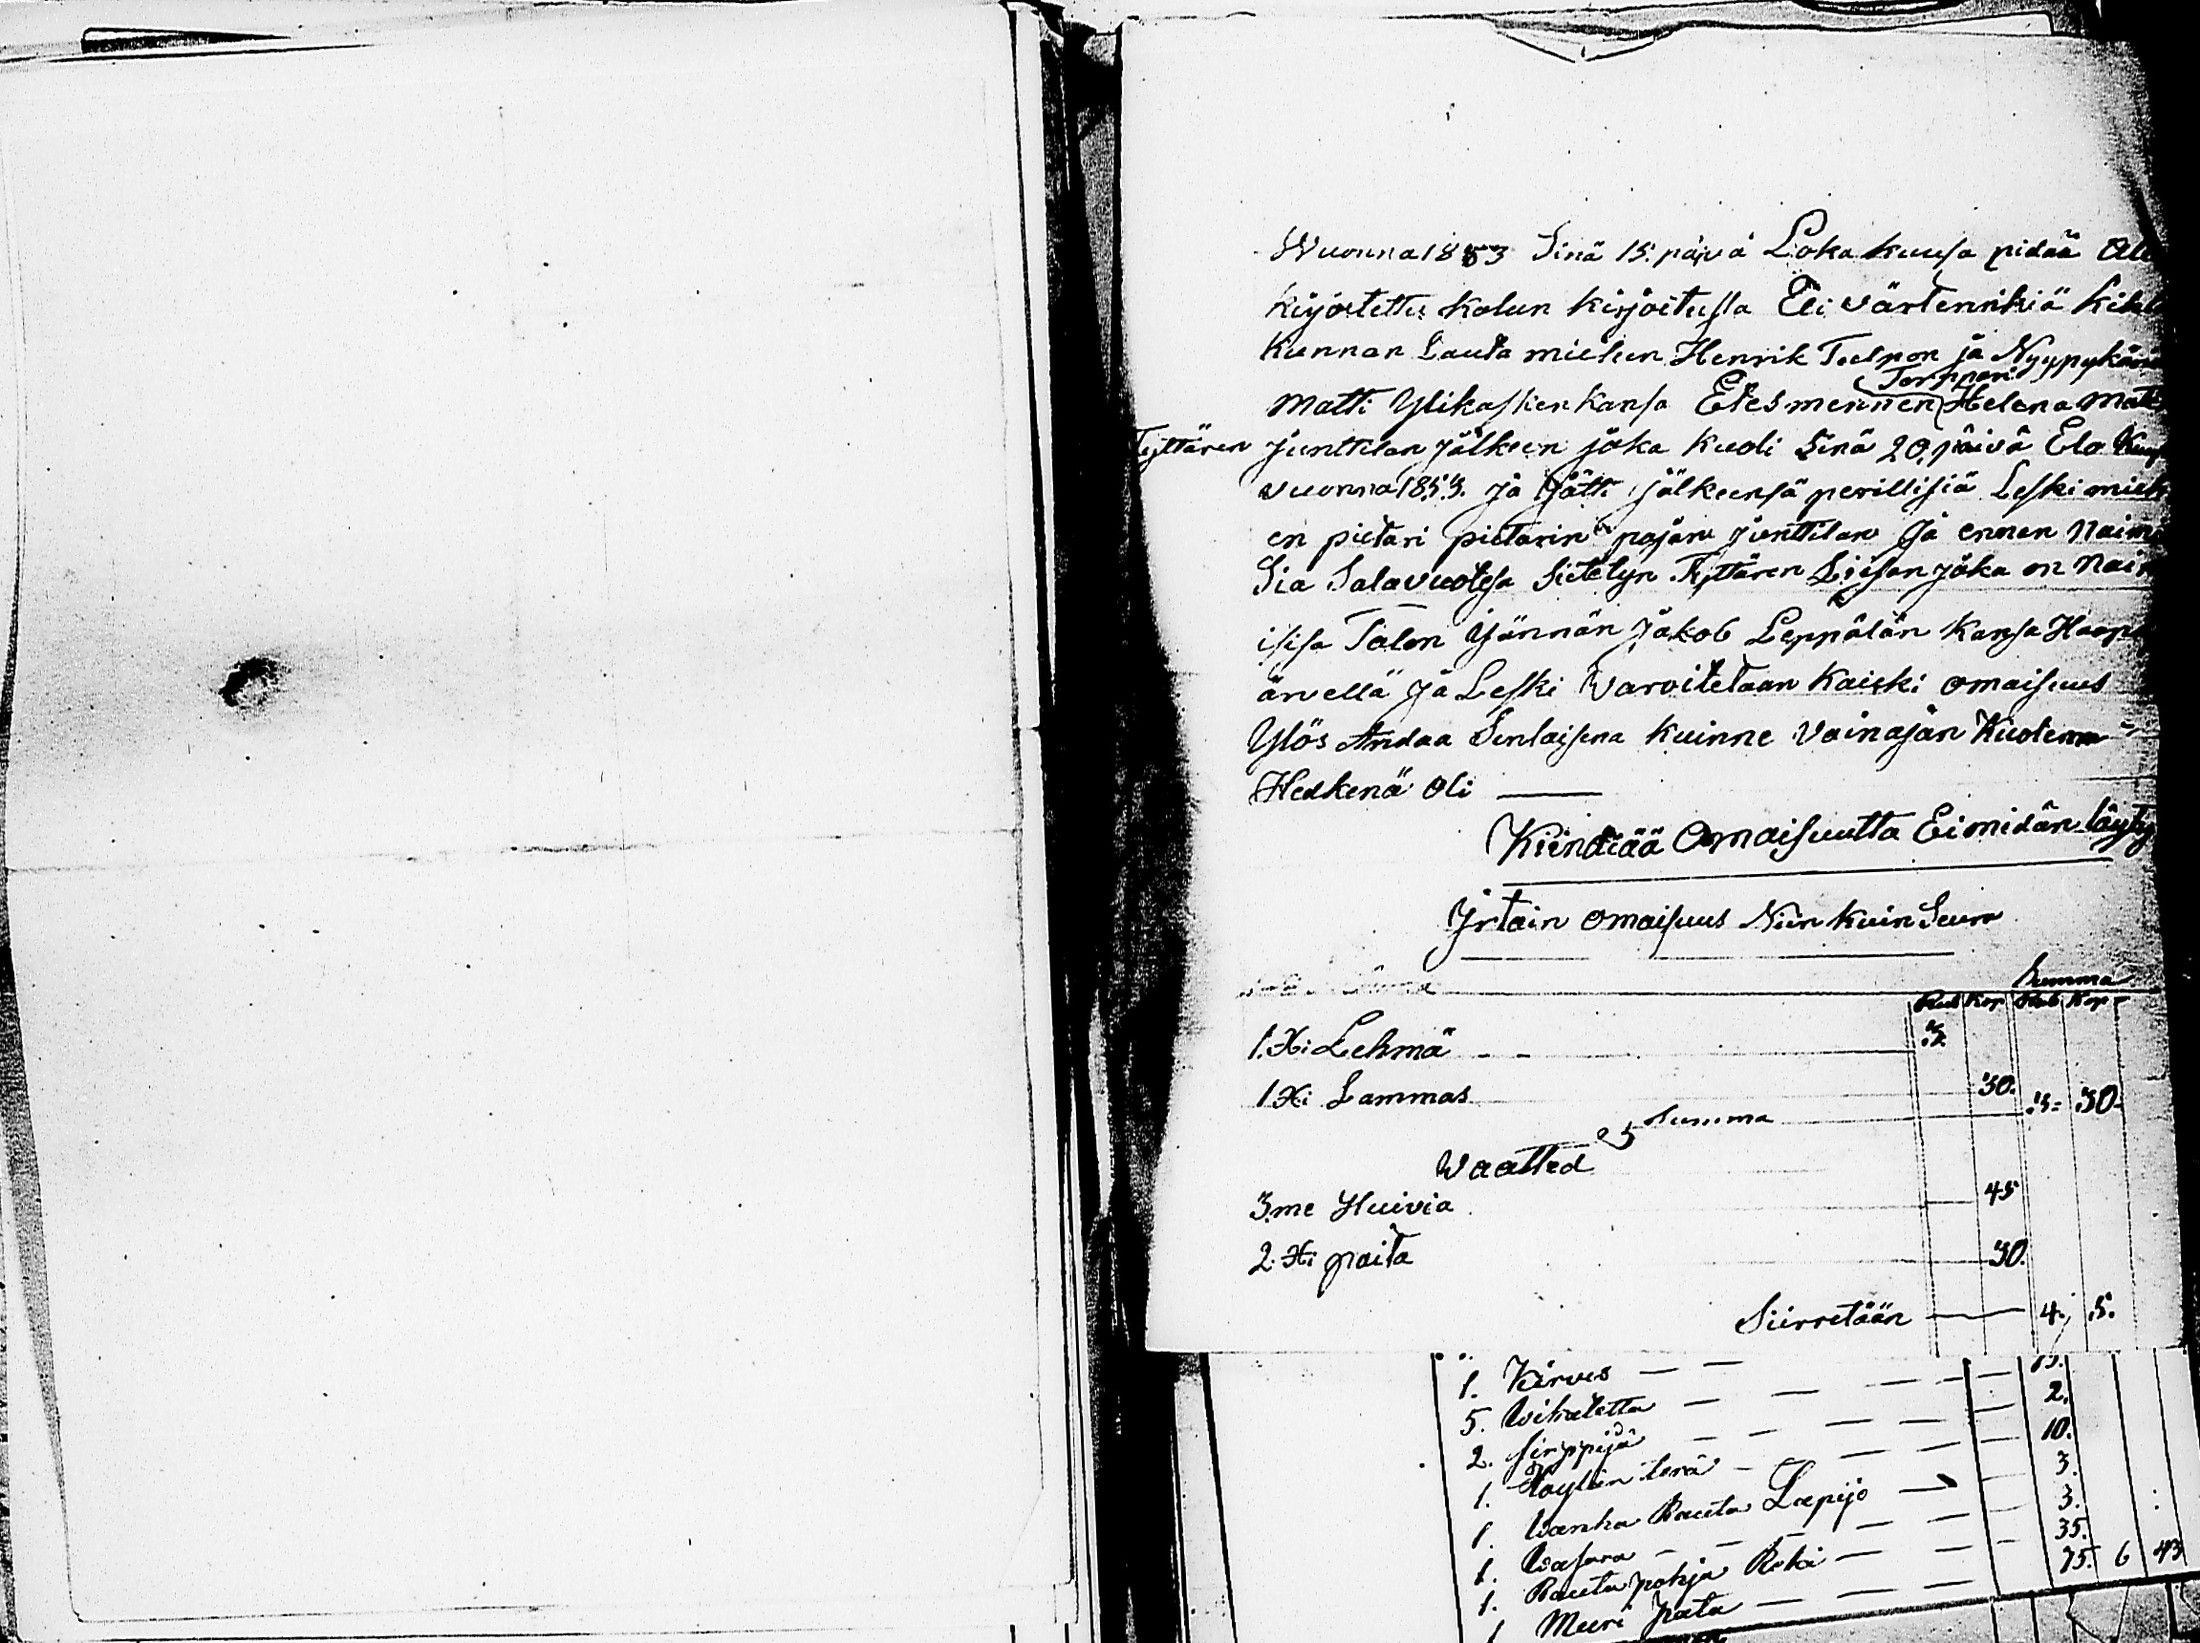 Wuonna 1853 Sinä 15. päivä Loka kuusa pidää Ala
kirjoitettu kalun kirjoitusta Eli värtenrikiä kihla
kunnan Lauta miehen Henrik Teelpon ja Nyypykän
Torppari
Matti Ylikasken kansa Edesmennen Helena Mati
Tyttären Junttilan Jälkeen joka kuoli Sinä 20. päivä Elo Kuusa
vuonna 1853. ja jätti jälkeensä perillisiä Leski mieh
en pietari pietarin pojan Junttilan Ja ennen Naimi
Sia Salavuotesa Sietetyn Tyttären Liisan joka on Naim
isisa Talon Jsännän Jakob Leppälän kansa Haap
ärvellä ja Leski Varoitetaan kaiski omaisuus
Ylös Andaa Senlaisena kuinne Vainajan Kuoleman
Hedkenä Oli
Kiindiää Omaisuutta Ei midän löyty
Jrtain omaisuus Niin kuin Seura
Summa
Rub Kop Rub Kop
1. Xi Lehmä 3.
1 Xi Lammas 30.
Summa 3. 30.
Waatted
3.me Huivia 45
2. Xi paita 30.
Siirretään 4. 5.
1. Kirves 15.
5. Wikatetta 2.
2. sirppijä 10.
1. Höylän terä 3.
1. Wanha Rauta Lapijo 3.
1. Wasara 35.
1. Rauta pohja Reki 75. 6 43
1 Muuri pata